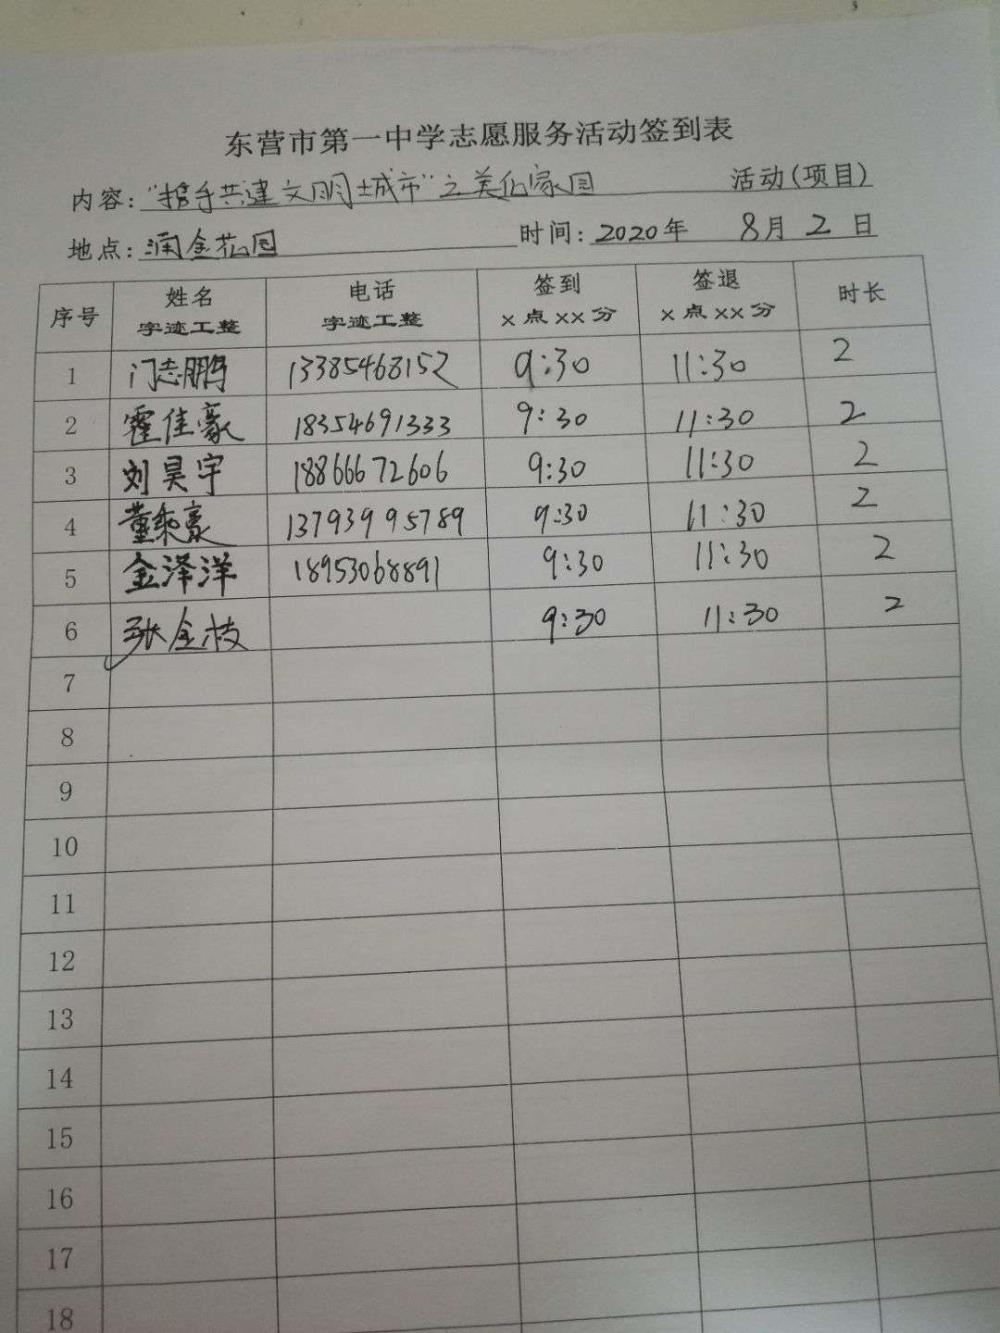 东营市第一中学志愿服务活动签到表
内容: "携手共建文明城市"之美化家园 活动(项目)
地点: 润金花园 时间: 2020年 8月 2 日
序号 姓名 字迹工整 电话 字迹工整 签到 x 点 xx 分 签退 x 点 xx 分 时长
1 门志鹏 13385468152 9:30 11:30 2
2 霍佳豪 18354691333 9:30 11:30 2
3 刘昊宇 18866672606 9:30 11:30 2
4 董秉豪 13793995789 9:30 11:30 2
5 金泽洋 18953068891 9:30 11:30 2
6 张金枝 9:30 11:30 2
7
8
9
10
11
12
13
14
15
16
17
18